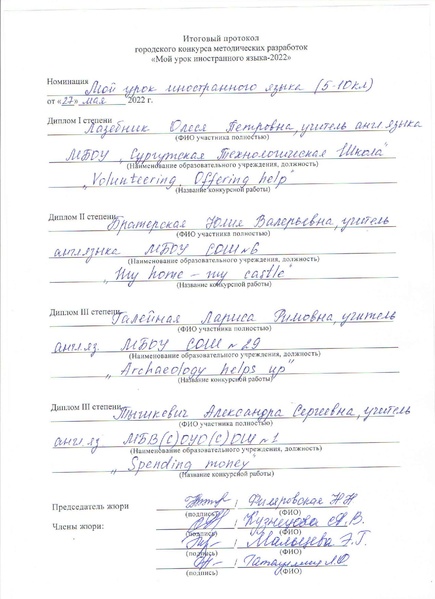 Итоговый протокол
городского конкурса методических разработок
«Мой урок иностранного языка-2022»
Номинация Мой урок иностранного языка (5-10кл)
от «27» мая 2022 г.
Диплом I степени
Лазебник Олеся Петровна, учитель англ языка
(ФИО участника полностью)
МБОУ „Сургутская Технологическая Школа"
(Наименование образовательного учреждения, должность)
„Volunteering. Offering help"
(Название конкурсной работы)
Диплом II степени
Братерская Юлия Валерьевна, учитель
(ФИО участника полностью)
англ языка МБОУ СОШ №6
(Наименование образовательного учреждения, должность)
„My home – my castle"
(Название конкурсной работы)
Диплом III степени Галейная Лариса Римовна, учитель
(ФИО участника полностью)
англ яз. МБОУ СОШ №29
(Наименование образовательного учреждения, должность)
„Archaeology helps up"
(Название конкурсной работы)
Диплом III степени Тышкевич Александра Сергеевна, учитель
(ФИО участника полностью)
англ яз МБВ(С)ОУО(С)ОШ №1
(Наименование образовательного учреждения, должность)
„Spending money"
(Название конкурсной работы)
Председатель жюри
(подпись) (ФИО)
Члены жюри: Кузнецова А.В.
(подпись) (ФИО)
Мальцева Э.Г.
(подпись) (ФИО)
(подпись) (ФИО)